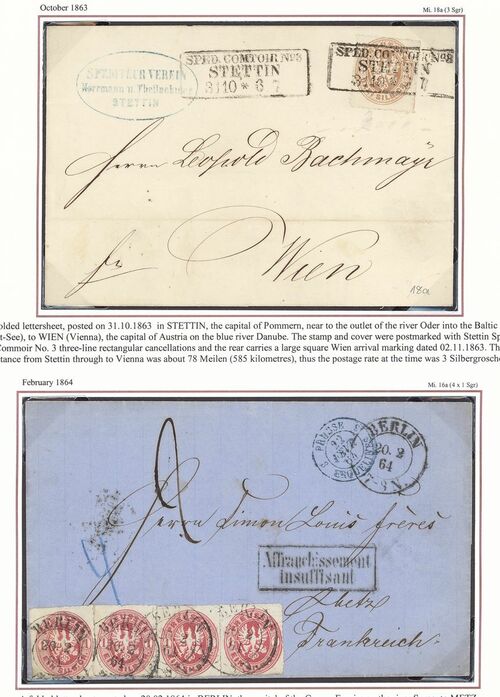 October 1863
Mi. 18a (3 Sgr)
SPEDITEUR VEREIN
Herrmann u. Theilnehmer
STETTIN
SPED. COMTOIR No 3
STETTIN
31 10 * 6 7
SPED. COMTOIR No 3
STETTIN
31 10 *
Herrn Leopold Bachmayr
Wien
18a
olded lettersheet, posted on 31.10.1863 in STETTIN, the capital of Pommern, near to the outlet of the river Oder into the Baltic
st-See), to WIEN (Vienna), the capital of Austria on the blue river Danube. The stamp and cover were postmarked with Stettin Sp
Commoir No. 3 three-line rectangular cancellations and the rear carries a large square Wien arrival marking dated 02.11.1863. Th
stance from Stettin through to Vienna was about 78 Meilen (585 kilometres), thus the postage rate at the time was 3 Silbergrosche
February 1864
Mi. 16a (4 x 1 Sgr)
BERLIN
20. 2
64
PRUSSE
22
Herrn Simon Louis frères
Affranchissement
insuffisant
Metz
Frankreich
BERLIN
20. 2
64
BERLIN